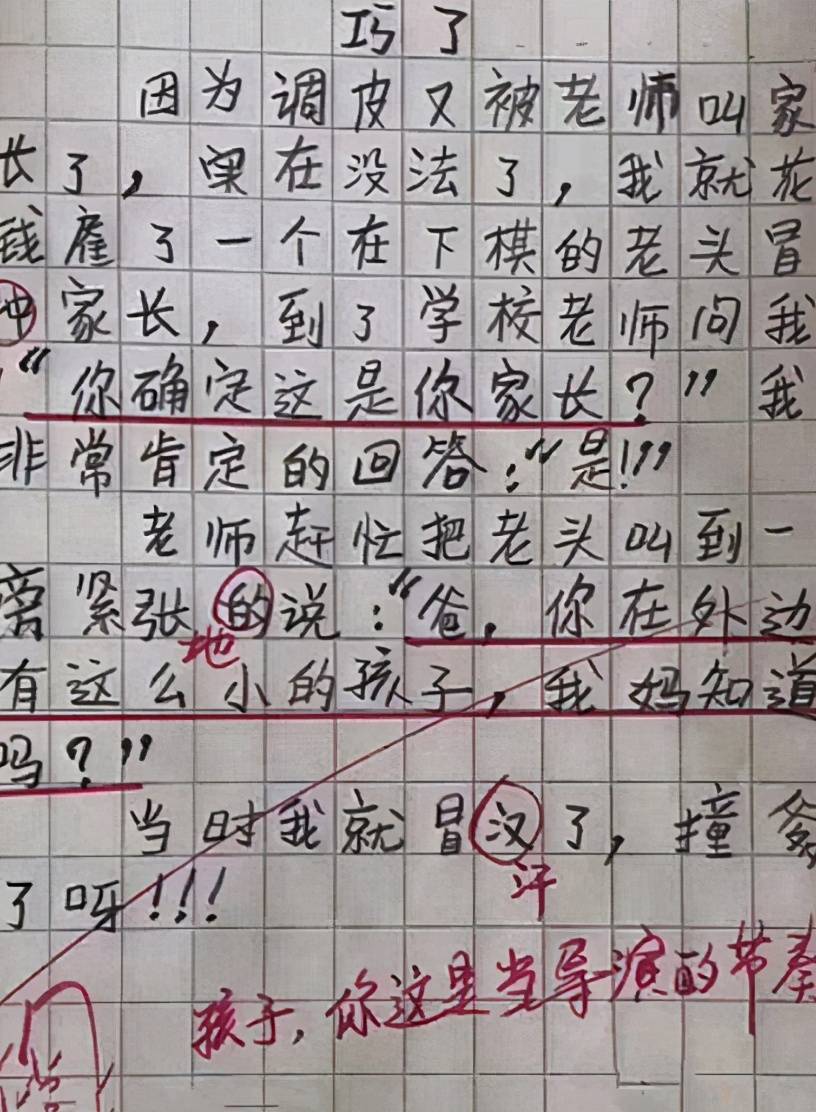 巧了
因为调皮又被老师叫家
长了，实在没法了，我就花
钱雇了一个在下棋的老头冒
冲家长，到了学校老师问我
“你确定这是你家长？”我
非常肯定的回答：“是！”
老师赶忙把老头叫到一
旁紧张的说：“爸，你在外边
地
有这么小的孩子，我妈知道
吗？”
当时我就冒汉了，撞爹
汗
了呀！！！
孩子，你这是当导演的节奏